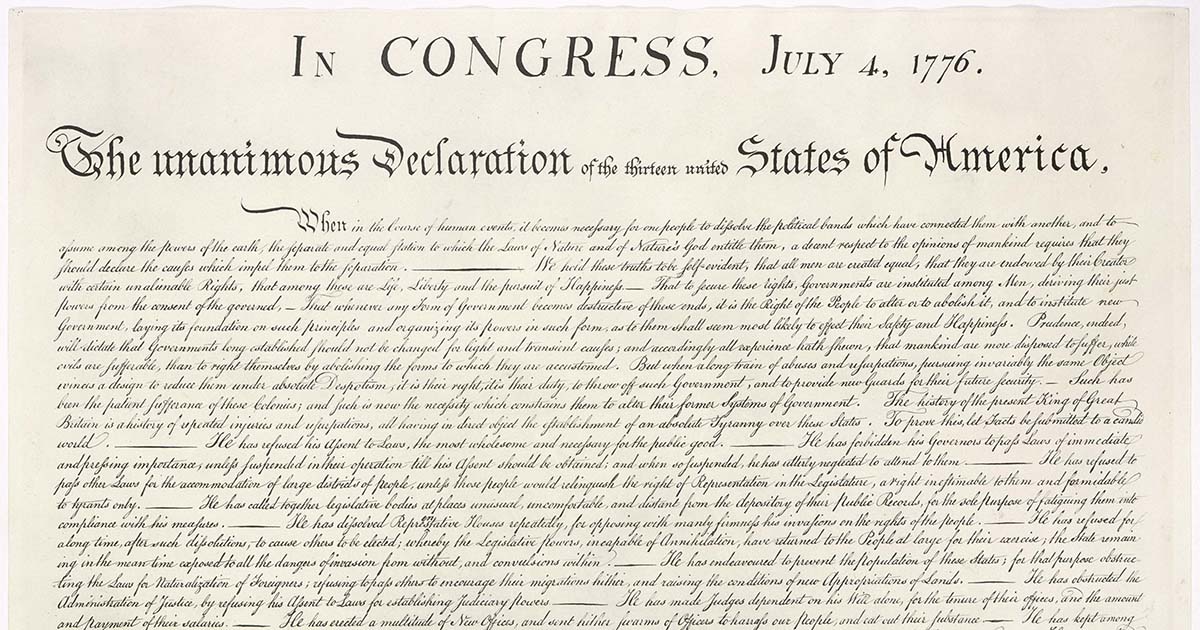 In CONGRESS, July 4, 1776.
The unanimous Declaration of the thirteen united States of America,
When in the Course of human events, it becomes necessary for one people to dissolve the political bands which have connected them with another, and to
assume among the powers of the earth, the separate and equal station to which the Laws of Nature and of Nature's God entitle them, a decent respect to the opinions of mankind requires that they
should declare the causes which impel them to the separation. ——— We hold these truths to be self-evident, that all men are created equal, that they are endowed by their Creator
with certain unalienable Rights, that among these are Life, Liberty and the pursuit of Happiness.— That to secure these rights, Governments are instituted among Men, deriving their just
powers from the consent of the governed, — That whenever any Form of Government becomes destructive of these ends, it is the Right of the People to alter or to abolish it, and to institute new
Government, laying its foundation on such principles and organizing its powers in such form, as to them shall seem most likely to effect their Safety and Happiness. Prudence, indeed,
will dictate that Governments long established should not be changed for light and transient causes; and accordingly all experience hath shewn, that mankind are more disposed to suffer, while
evils are sufferable, than to right themselves by abolishing the forms to which they are accustomed. But when a long train of abuses and usurpations, pursuing invariably the same Object
evinces a design to reduce them under absolute Despotism, it is their right, it is their duty, to throw off such Government, and to provide new Guards for their future security. — Such has
been the patient sufferance of these Colonies; and such is now the necessity which constrains them to alter their former Systems of Government. The history of the present King of Great
Britain is a history of repeated injuries and usurpations, all having in direct object the establishment of an absolute Tyranny over these States. To prove this, let Facts be submitted to a candid
world. ——— He has refused his Assent to Laws, the most wholesome and necessary for the public good. ——— He has forbidden his Governors to pass Laws of immediate
and pressing importance, unless suspended in their operation till his Assent should be obtained; and when so suspended, he has utterly neglected to attend to them. ——— He has refused to
pass other Laws for the accommodation of large districts of people, unless those people would relinquish the right of Representation in the Legislature, a right inestimable to them and formidable
to tyrants only. ——— He has called together legislative bodies at places unusual, uncomfortable, and distant from the depository of their Public Records, for the sole purpose of fatiguing them into
compliance with his measures. ——— He has dissolved Representative Houses repeatedly, for opposing with manly firmness his invasions on the rights of the people. ——— He has refused for
a long time, after such dissolutions, to cause others to be elected; whereby the Legislative powers, incapable of Annihilation, have returned to the People at large for their exercise; the State remain-
ing in the mean time exposed to all the dangers of invasion from without, and convulsions within. ——— He has endeavoured to prevent the population of these States; for that purpose obstruc-
ting the Laws for Naturalization of Foreigners; refusing to pass others to encourage their migrations hither, and raising the conditions of new Appropriations of Lands. ——— He has obstructed the
Administration of Justice, by refusing his Assent to Laws for establishing Judiciary powers ——— He has made Judges dependent on his Will alone, for the tenure of their offices, and the amount
and payment of their salaries. ——— He has erected a multitude of New Offices, and sent hither swarms of Officers to harrass our people, and eat out their substance ——— He has kept among